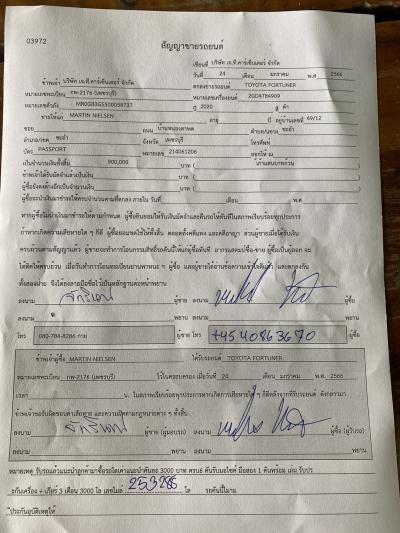 03972
สัญญาขายรถยนต์
เขียนที่ บริษัท เจ.ที.คาร์เซ็นเตอร์ จำกัด
วันที่ 24 เดือน มกราคม พ.ศ 2566
ข้าพเจ้า บริษัท เจ.ที.คาร์เซ็นเตอร์ จำกัด ตกลงขายรถยนต์ TOYOTA FORTUNER
หมายเลขทะเบียน กพ-2176 (เพชรบุรี) หมายเลขเครื่องยนต์ 2GD4784909
หมายเลขตัวถัง ปี 2020 สี ดำ
ขายให้แก่ MARTIN NIELSEN อายุ ปี อยู่บ้านเลขที่ 69/12
ซอย ถนน ตำบล/แขวง ชะอำ
อำเภอ/เขต ชะอำ จังหวัด เพชรบุรี โทรศัพท์
บัตร PASSPORT หมายเลข 214061206 ออกให้ ณ
เป็นจำนวนเงินทั้งสิ้น 900,000 บาท ( เก้าแสนบาทถ้วน
ข้าพเจ้าได้รับมัดจำแล้วเป็นเงิน บาท (
ผู้ซื้อยังคงค้างอีกเป็นจำนวนเงิน บาท (
ผู้ซื้อจะนำเงินมาชำระให้ครบจำนวนตามที่ตกลง ภายใน วันที่ เดือน พ.ศ
หากผู้ซื้อไม่นำเงินมาชำระให้ตามกำหนด ผู้ซื้อยินยอมให้ริบเงินมัดจำและคืนรถให้ทันทีในสภาพเรียบร้อยทุกประการ
ถ้าหากเกิดความเสียหายใด ๆ ก็ดี ผู้ซื้อยอมชดใช้ให้ทั้งสิ้น ส่วนผู้ขายเมื่อได้รับเงิน
ครบถ้วนตามสัญญาแล้ว ผู้ขายจะทำการโอนกรรมสิทธิ์รถคันนี้ให้แก่ผู้ซื้อทันที
ลงนาม ผู้ขาย ลงนาม ผู้ซื้อ
ลงนาม พยาน ลงนาม พยาน
โทร 080-784-8286 กาย ผู้ขาย โทร +45 40863670 ผู้ซื้อ
ข้าพเจ้าผู้ซื้อ MARTIN NIELSEN ได้รับรถยนต์ TOYOTA FORTUNER
หมายเลขทะเบียน กพ-2176 (เพชรบุรี) ไว้ในครอบครอง เมื่อวันที่ 24 เดือน มกราคม พ.ศ. 2566
เวลา น. ในสภาพเรียบร้อยทุกประการหากเกิดการเสียหายใด ๆ ก็ดีหลังจากที่รับรถยนต์ ดังกล่าวมา
ข้าพเจ้าขอรับผิดชอบค่าเสียหาย และความผิดตามกฎหมายต่าง ๆ ทั้งสิ้น
ลงนาม ผู้ขาย (ผู้มอบรถ) ลงนาม ผู้ซื้อ (ผู้รับรถ)
ลงนาม พยาน ลงนาม พยาน
หมายเหตุ รับรถแล้วแนะนำลูกค้ามาซื้อรถได้ค่าแนะนำคันละ 3000 บาท
ะกันเครื่อง + เกียร์ 3 เดือน 3000 โล เลขไมล์ 253286 โล รถคันนี้ไม่